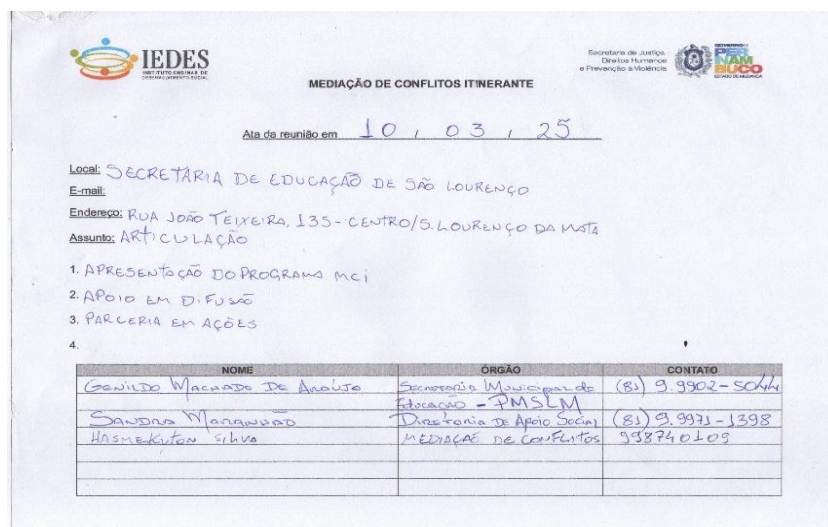 IEDES
INSTITUTO ENSINAR DE
DESENVOLVIMENTO SOCIAL
Secretaria de Justiça,
Direitos Humanos
e Prevenção à Violência
GOVERNO DE
PER
NAM
BUCO
ESTADO DE MUDANÇA
MEDIAÇÃO DE CONFLITOS ITINERANTE
Ata da reunião em 10 / 03 / 25
Local: SECRETÁRIA DE EDUCAÇÃO DE SÃO LOURENÇO
E-mail:
Endereço: RUA JOÃO TEIXEIRA, 135 - CENTRO/S. LOURENÇO DA MATA
Assunto: ARTICULAÇÃO
1. APRESENTAÇÃO DO PROGRAMA MCI
2. APOIO EM DIFUSÃO
3. PARCERIA EM AÇÕES
4.
NOME ÓRGÃO CONTATO
GENILDO MACHADO DE ARAÚJO Secretaria Municipal de (81) 9.9902-5044
Educação - PMSLM
SANDRA MARANHÃO DIRETORIA DE APOIO SOCIAL (81) 9.9971-1398
HASMEKITON SILVA MEDIAÇÃO DE CONFLITOS 998740109